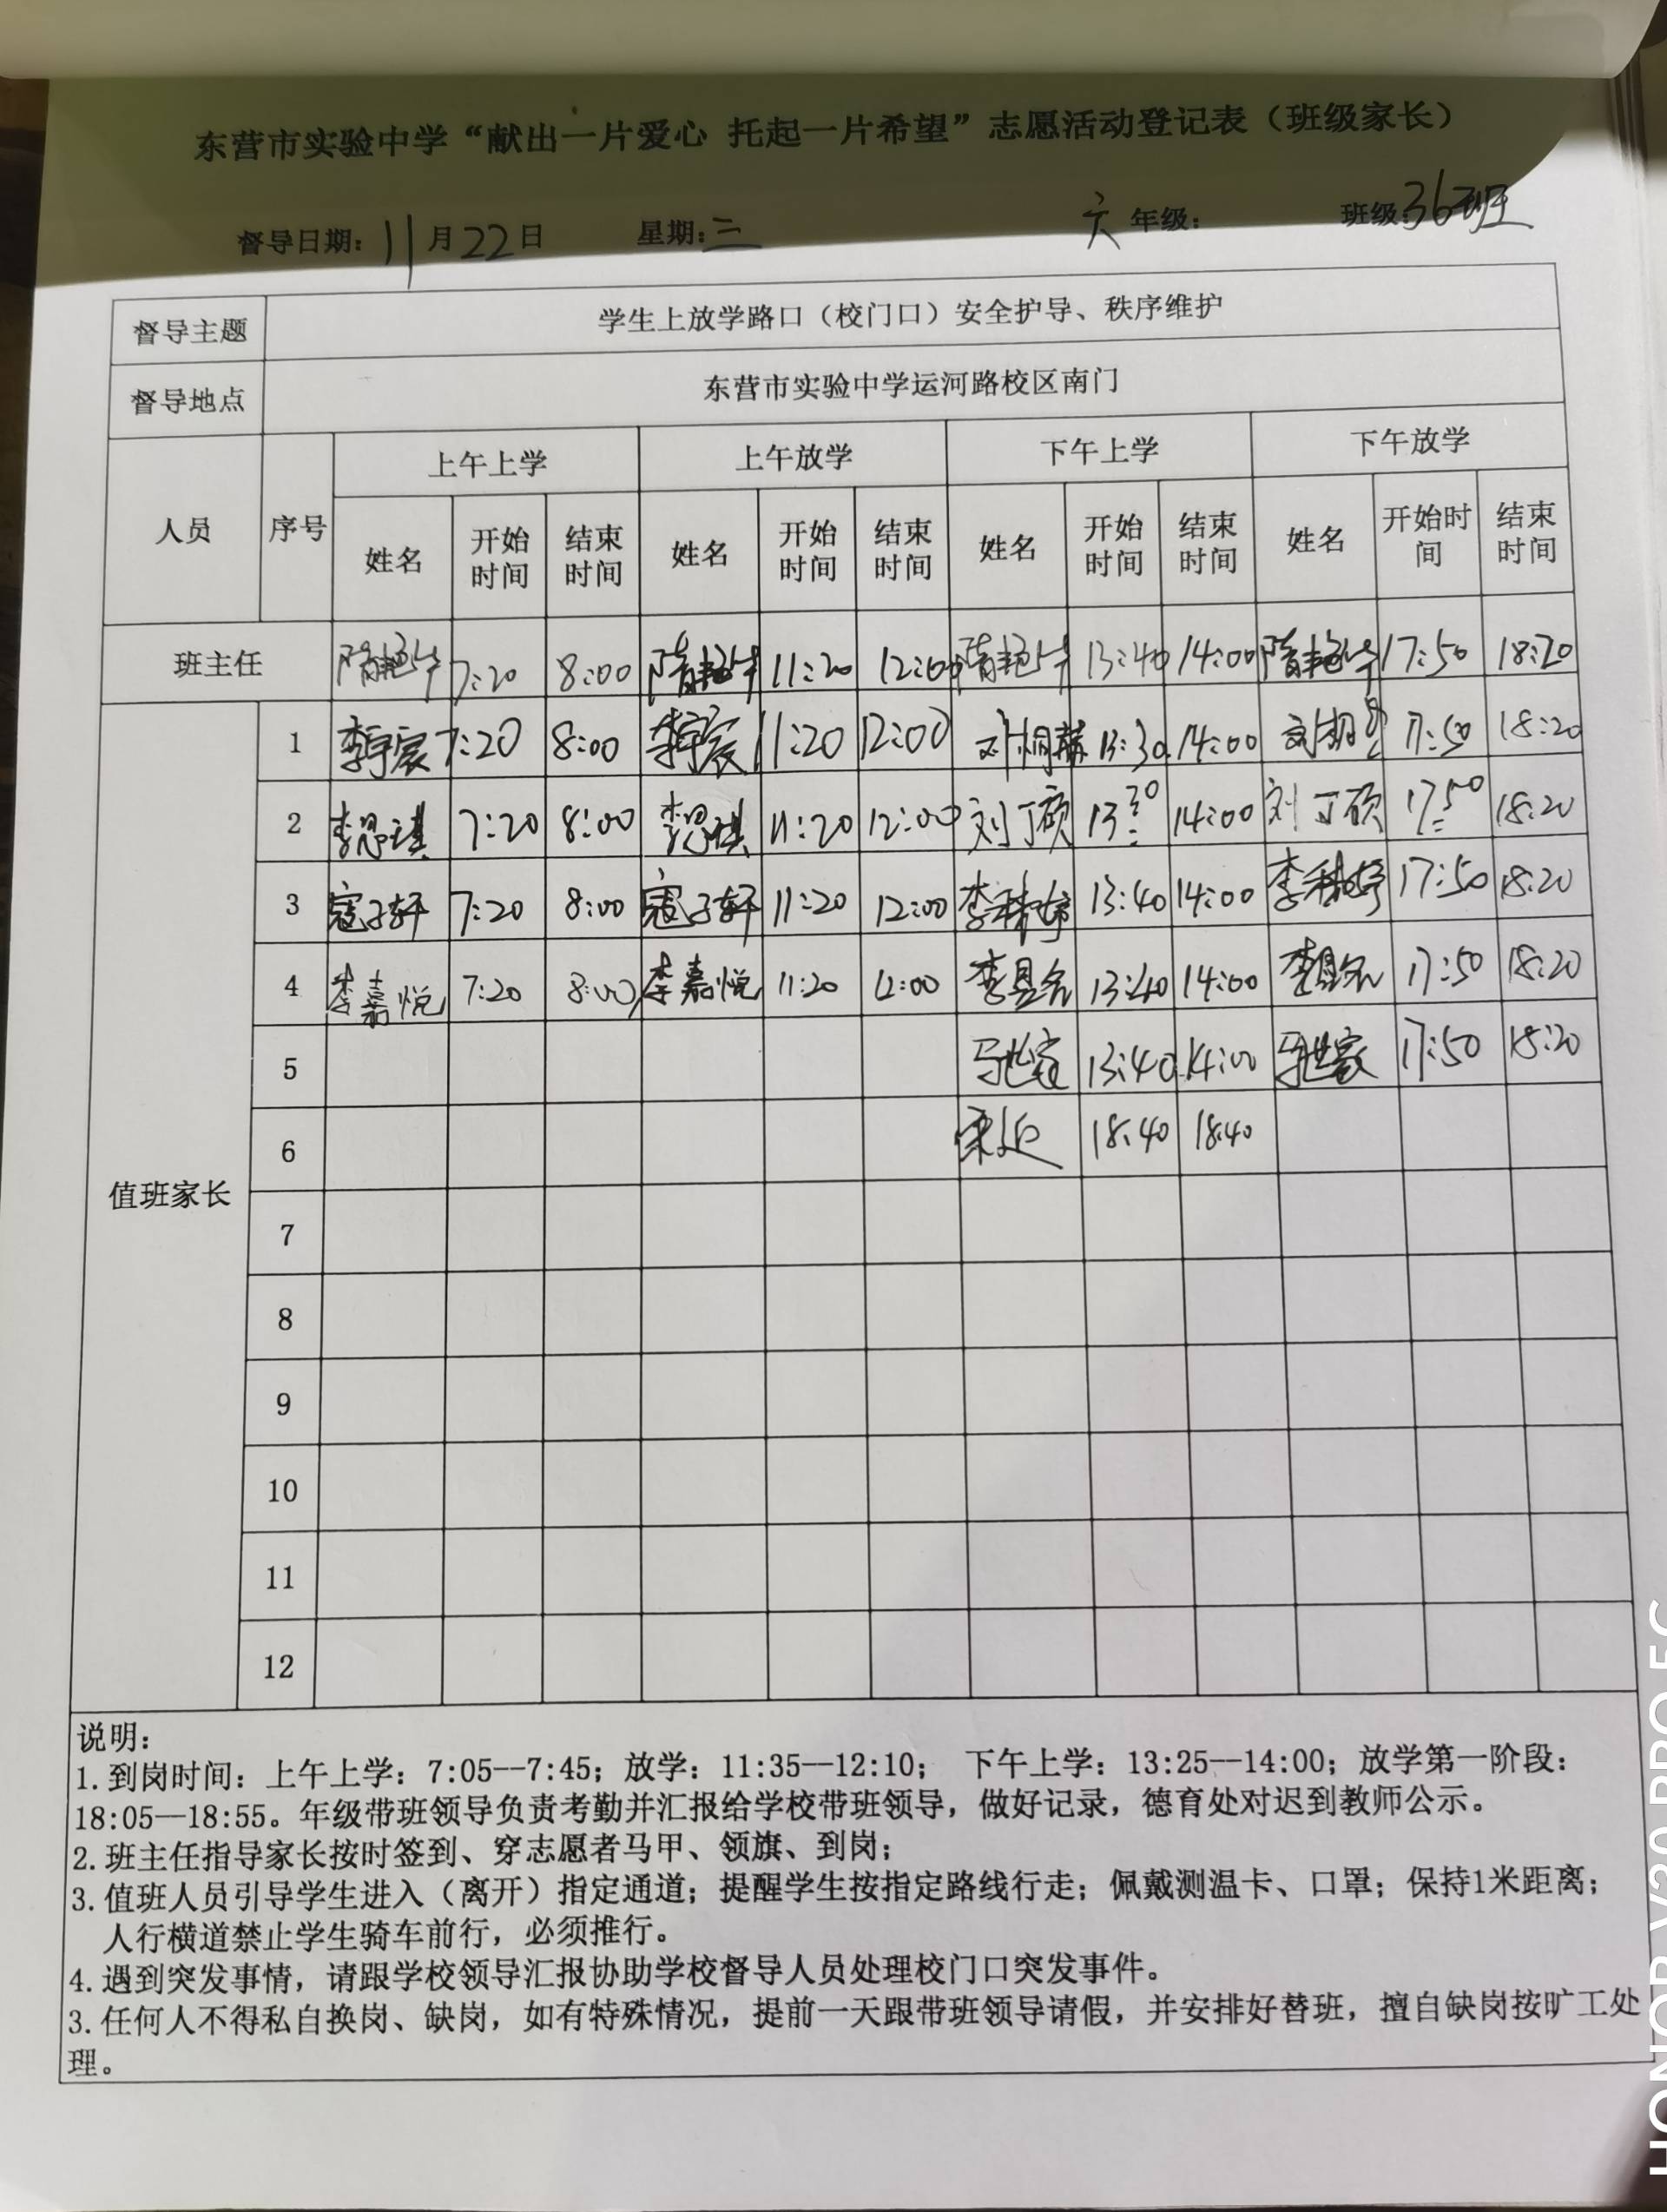 东营市实验中学“献出一片爱心 托起一片希望”志愿活动登记表（班级家长）
督导日期：11月22日 星期：三 六年级： 班级：36班
督导主题 学生上放学路口（校门口）安全护导、秩序维护
督导地点 东营市实验中学运河路校区南门
人员 序号 上午上学 上午放学 下午上学 下午放学
姓名 开始时间 结束时间 姓名 开始时间 结束时间 姓名 开始时间 结束时间 姓名 开始时间 结束时间
班主任 隋艳华 7:20 8:00 隋艳华 11:20 12:00 隋艳华 13:40 14:00 隋艳华 17:50 18:20
值班家长
1 李宇宸 7:20 8:00 李宇宸 11:20 12:00 13:30 14:00 17:50 18:20
2 李思琪 7:20 8:00 李思琪 11:20 12:00 刘丁硕 13:30 14:00 刘丁硕 17:50 18:20
3 寇子轩 7:20 8:00 寇子轩 11:20 12:00 13:40 14:00 17:50 18:20
4 李嘉悦 7:20 8:00 李嘉悦 11:20 12:00 13:40 14:00 17:50 18:20
5 13:40 14:00 17:50 18:20
6 18:40 18:40
7
8
9
10
11
12
说明：
1.到岗时间：上午上学：7:05--7:45；放学：11:35—12:10； 下午上学：13:25—14:00；放学第一阶段：
18:05—18:55。年级带班领导负责考勤并汇报给学校带班领导，做好记录，德育处对迟到教师公示。
2.班主任指导家长按时签到、穿志愿者马甲、领旗、到岗；
3.值班人员引导学生进入（离开）指定通道；提醒学生按指定路线行走；佩戴测温卡、口罩；保持1米距离；
人行横道禁止学生骑车前行，必须推行。
4.遇到突发事情，请跟学校领导汇报协助学校督导人员处理校门口突发事件。
3.任何人不得私自换岗、缺岗，如有特殊情况，提前一天跟带班领导请假，并安排好替班，擅自缺岗按旷工处
理。
HONOR V30 PRO 5G